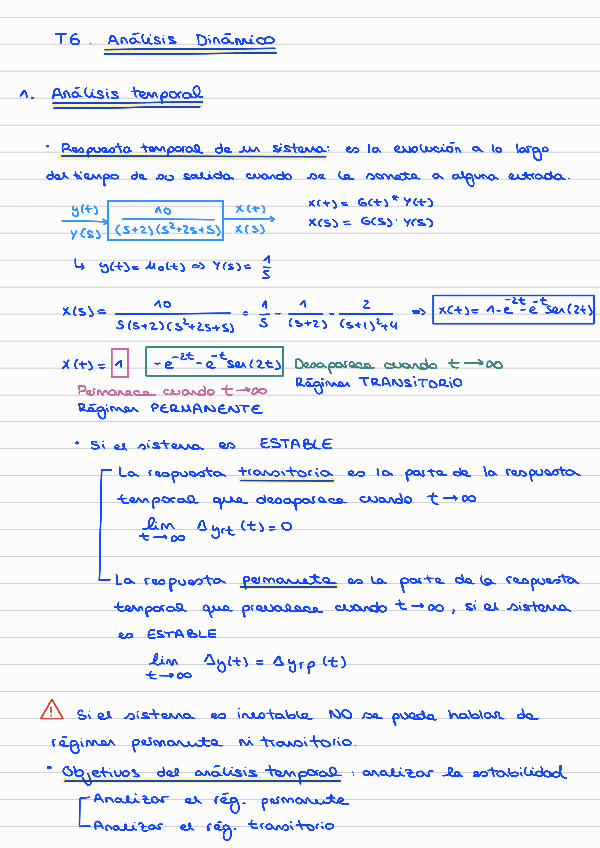 T6. Análisis Dinámico
1. Análisis temporal
· Respuesta temporal de un sistema: es la evolución a lo largo
del tiempo de su salida cuando se le somete a alguna entrada.
y(t) 10 x(t) x(t) = G(t) * Y(t)
Y(s) (s+2)(s²+2s+5) X(s) X(s) = G(s) · Y(s)
↳ y(t) = μ₀(t) ⇒ Y(s) = 1/s
X(s) = 10/(s(s+2)(s²+2s+5)) = 1/s - 1/(s+2) - 2/((s+1)²+4) ⇒ x(t) = 1-e^-2t -e^-t sen(2t)
x(t) = 1 -e^-2t -e^-t sen(2t) Desaparece cuando t→∞
Régimen TRANSITORIO
Permanece cuando t→∞
Régimen PERMANENTE
· Si el sistema es ESTABLE
La respuesta transitoria es la parte de la respuesta
temporal que desaparece cuando t→∞
lim t→∞ Δyrt (t) = 0
La respuesta permanente es la parte de la respuesta
temporal que prevalece cuando t→∞, si el sistema
es ESTABLE
lim t→∞ Δy(t) = Δyrp (t)
⚠ Si el sistema es inestable NO se puede hablar de
régimen permanente ni transitorio.
· Objetivos del análisis temporal: analizar la estabilidad
Analizar el rég. permanente
Analizar el rég. transitorio